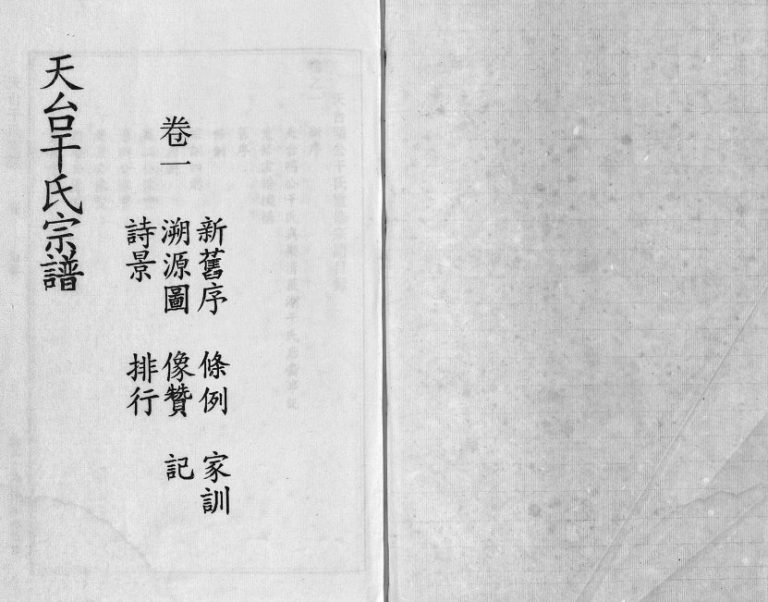 新舊序 條例 家訓
溯源圖 像贊 記
詩景 排行
卷一
天台干氏宗譜